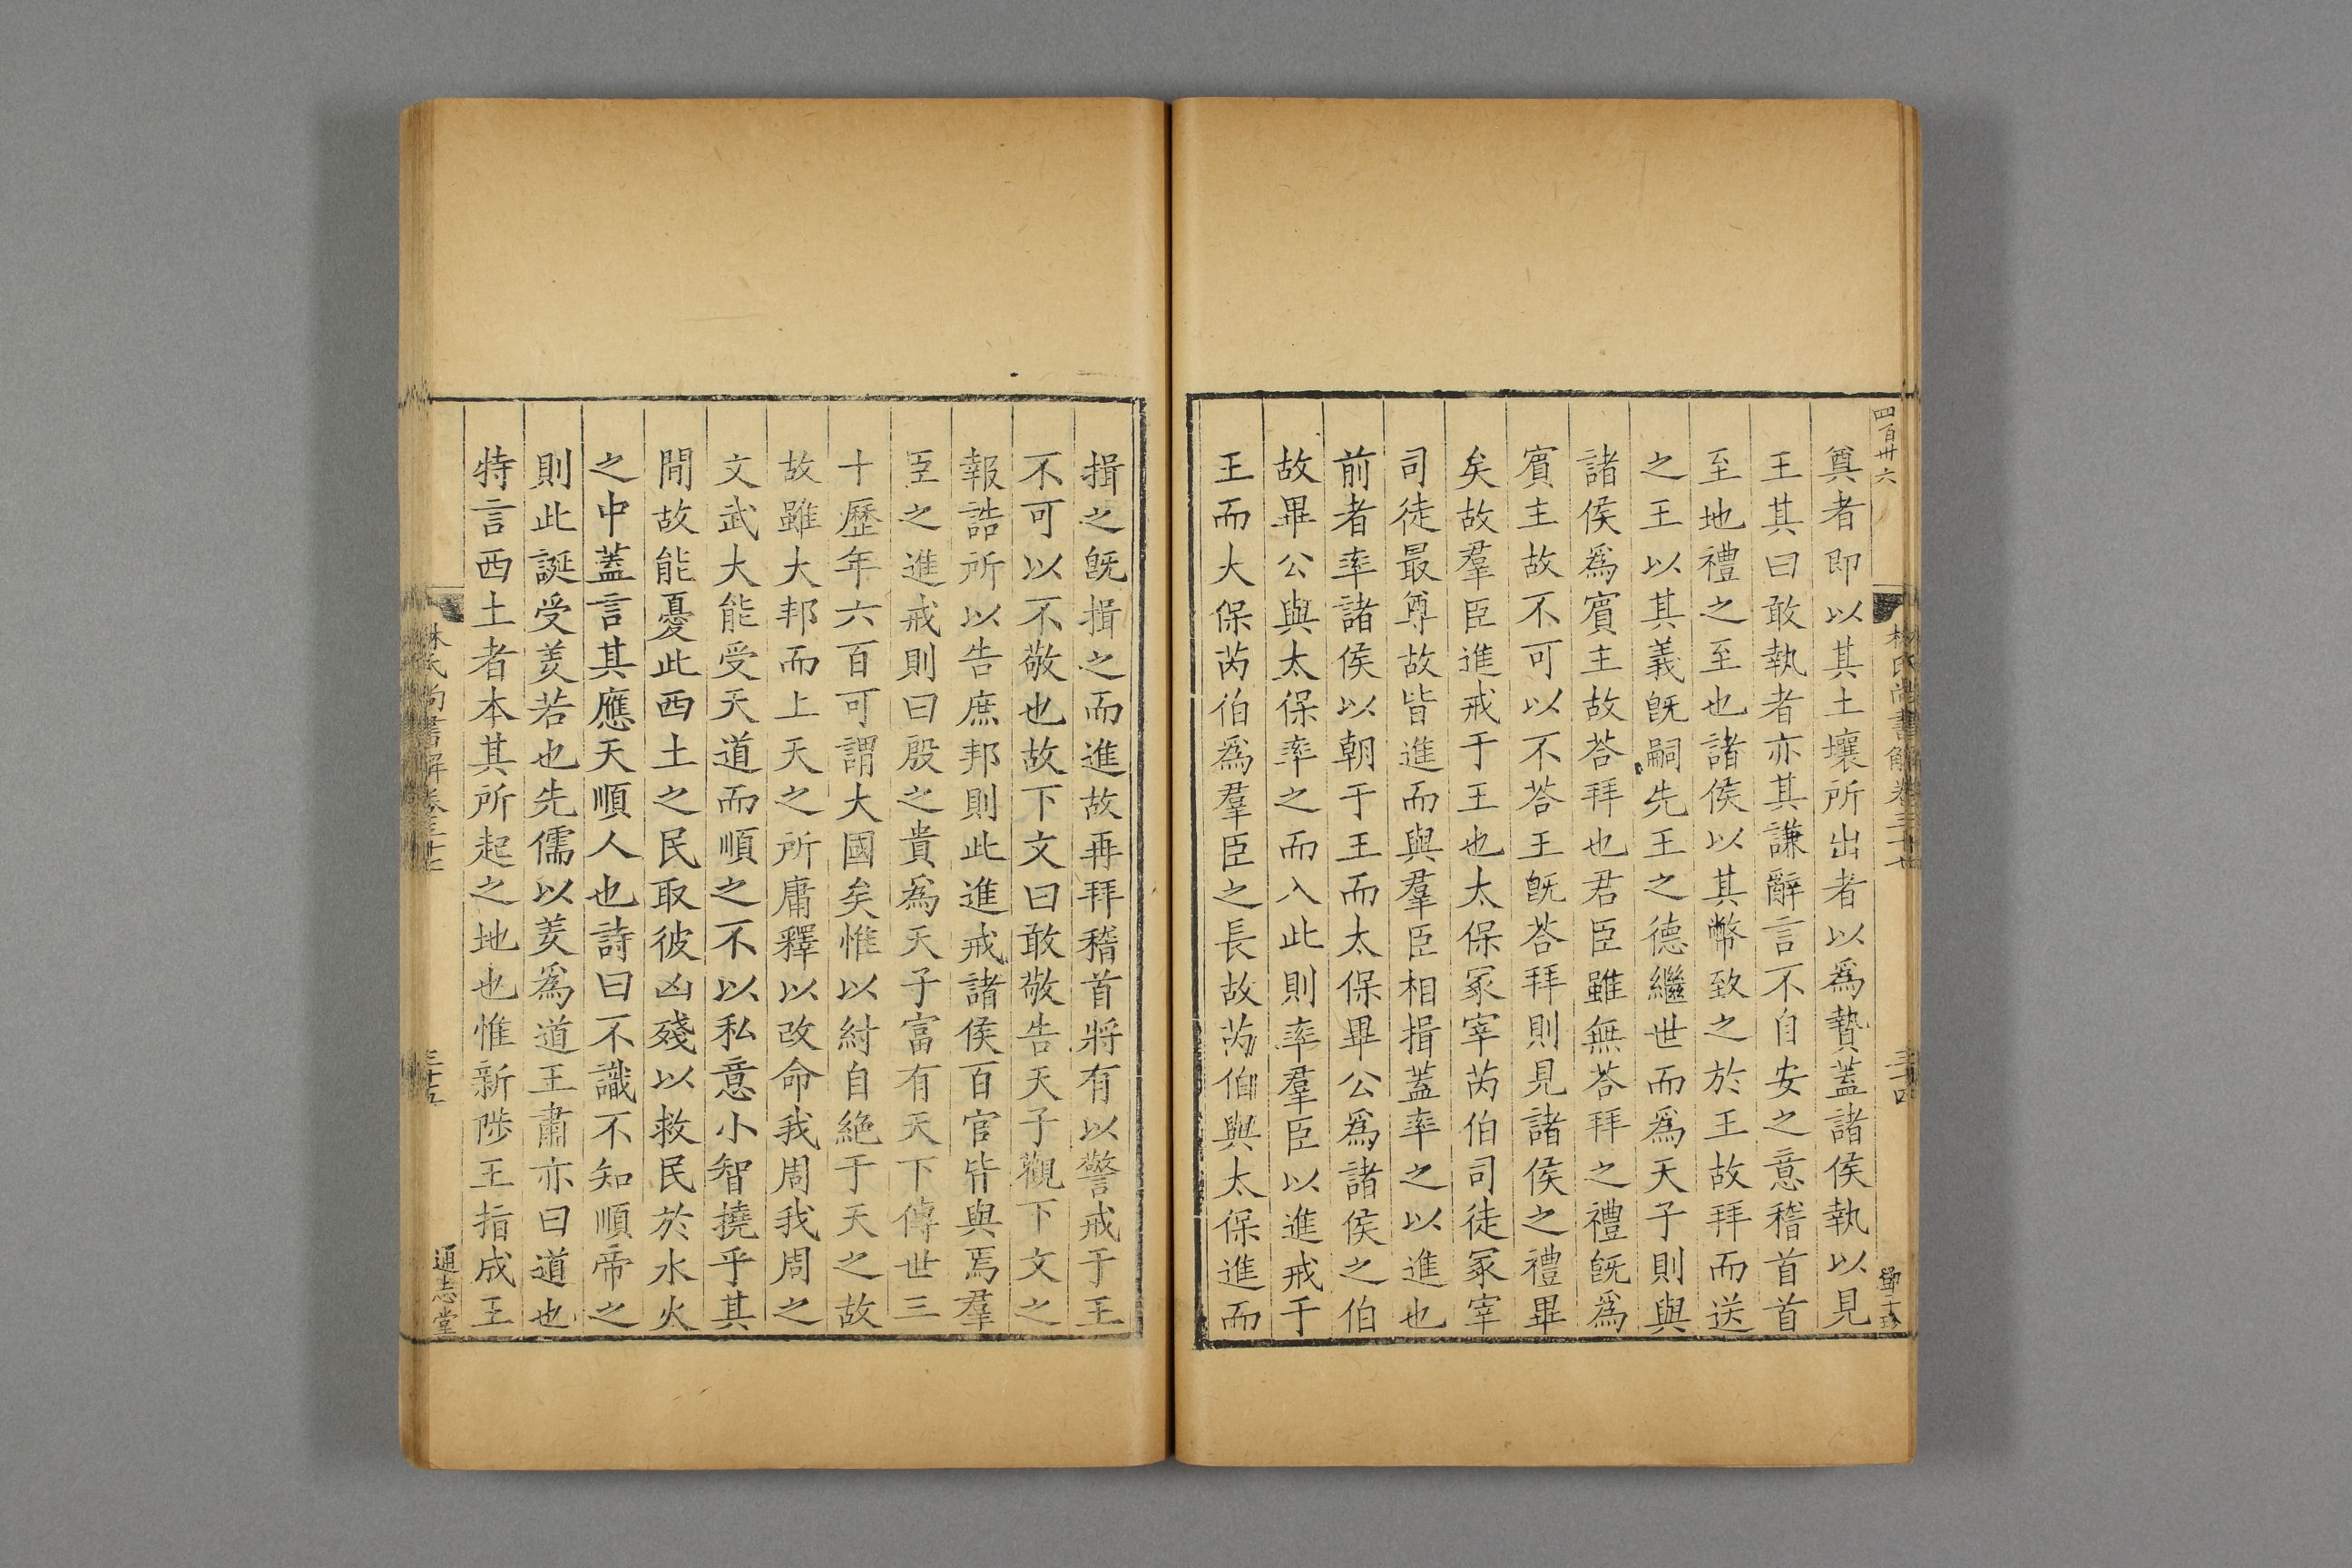 四百卄六
奠者即以其土壤所出者以爲贄蓋諸侯執以見
王其曰敢執者亦其謙辭言不自安之意稽首首
至地禮之至也諸侯以其幣致之於王故拜而送
之王以其義旣嗣先王之德繼世而爲天子則與
諸侯爲賓主故荅拜也君臣雖無荅拜之禮旣爲
賓主故不可以不荅王旣荅拜則見諸侯之禮畢
矣故羣臣進戒于王也太保冢宰芮伯司徒冢宰
司徒最尊故皆進而與羣臣相揖蓋率之以進也
前者率諸侯以朝于王而太保畢公爲諸侯之伯
故畢公與太保率之而入此則率羣臣以進戒于
王而大保芮伯爲羣臣之長故芮伯與太保進而
揖之旣揖之而進故再拜稽首將有以警戒于王
不可以不敬也故下文曰敢敬告天子觀下文之
報誥所以告庶邦則此進戒諸侯百官皆與焉羣
臣之進戒則曰殷之貴爲天子富有天下傳世三
十歷年六百可謂大國矣惟以紂自絶于天之故
故雖大邦而上天之所庸釋以改命我周我周之
文武大能受天道而順之不以私意小智撓乎其
閒故能憂此西土之民取彼凶殘以救民於水火
之中蓋言其應天順人也詩曰不識不知順帝之
則此誕受羑若也先儒以羑爲道王肅亦曰道也
特言西土者本其所起之地也惟新陟王指成王
林氏尚書解卷三十七
通志堂